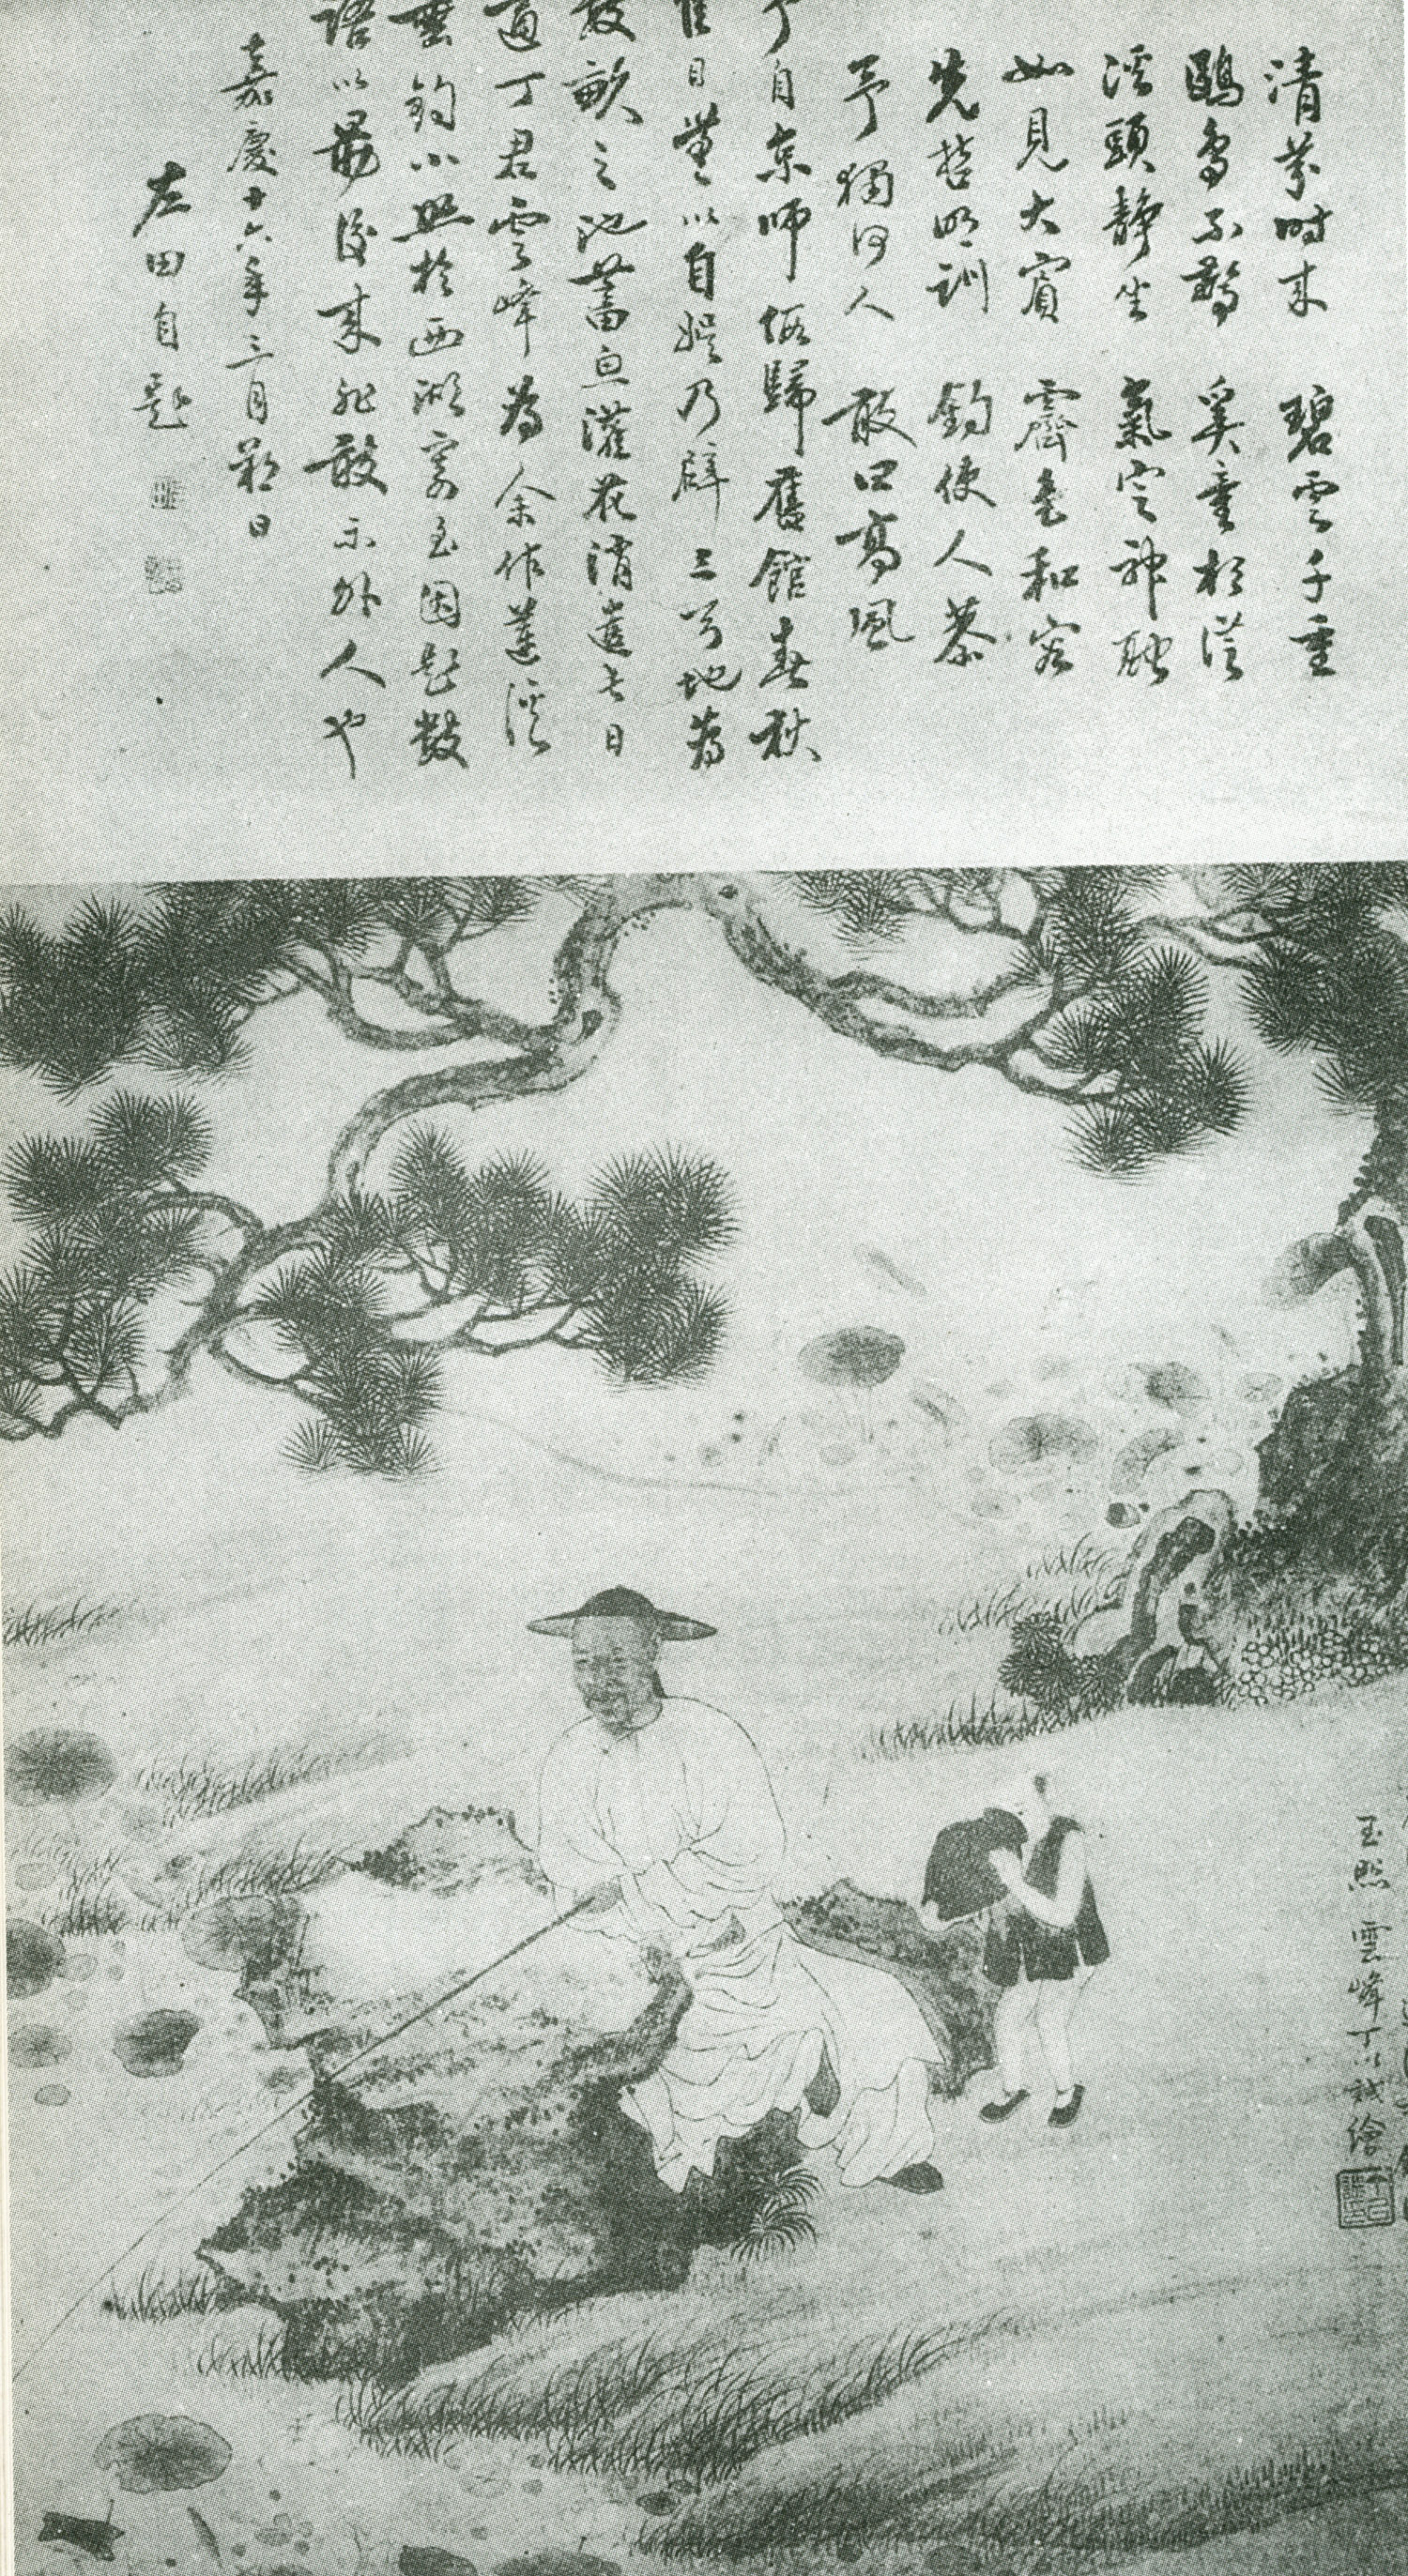 清芬時来 碧雲千重
鷗鳥不驚 奚童相從
溪頭靜坐 氣定神融
如見大賓 霽色和容
先哲明訓 釣使人恭
予獨何人 敢曰高風
予自京師歸舊館春秋
佳日無以自娛乃辟三弓地為
數畝之池蓄魚灌花消遣長日
適丁君雲峰為余作蓮溪
垂釣小照於西湖寄至因題數
語以勗後来非敢示外人也
嘉慶廿六年三月朔日
左田自題
玉照 雲峰丁以誠繪